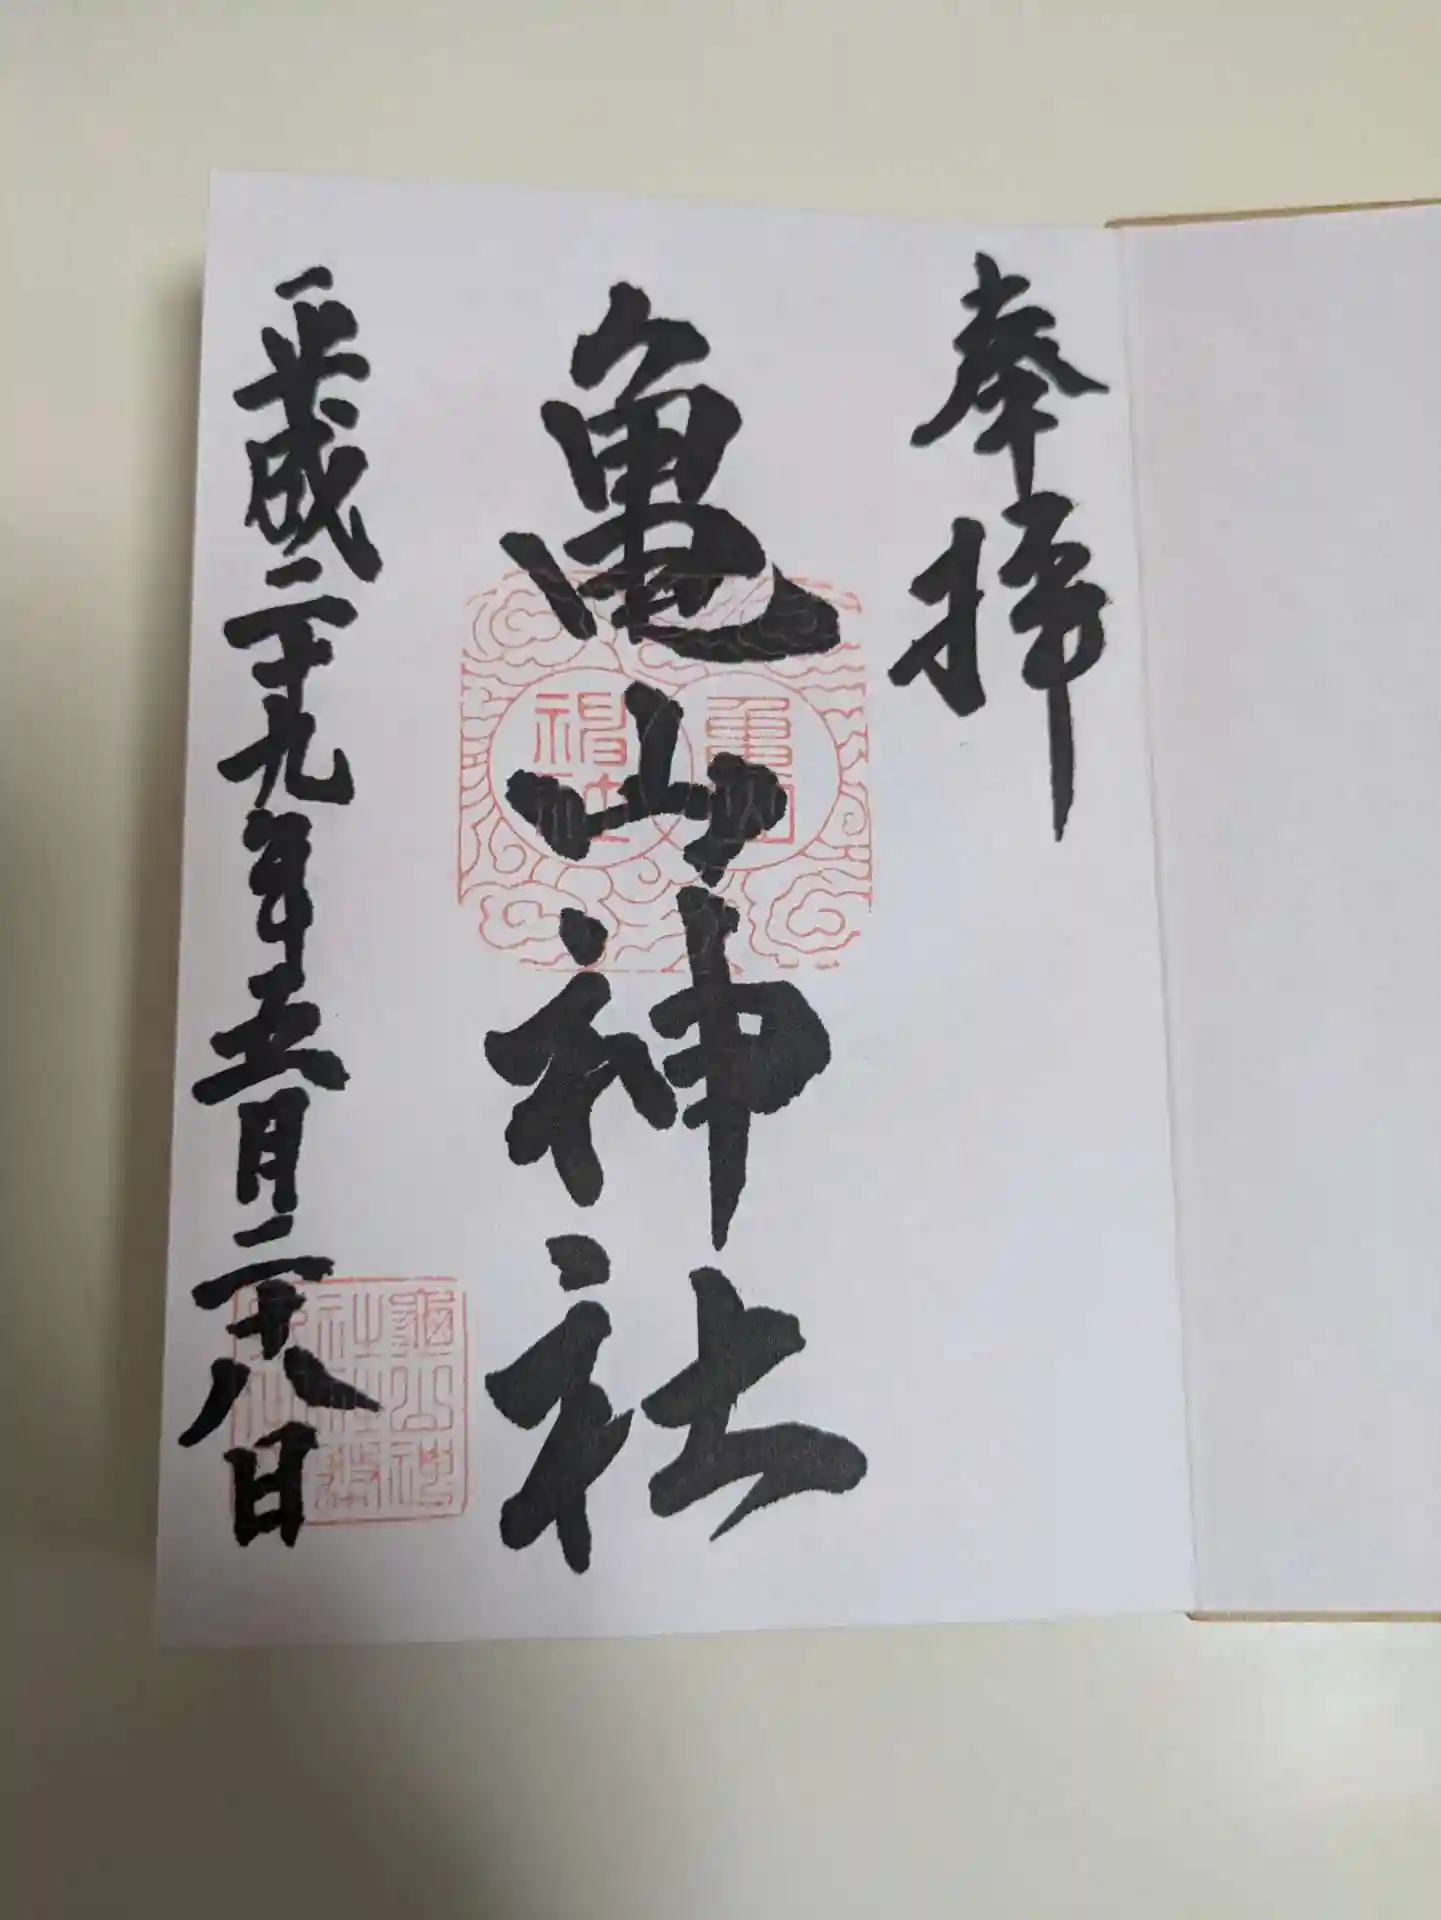 奉拝
亀山神社
平成二十九年五月二十八日
亀山
神社
亀山神
社社務